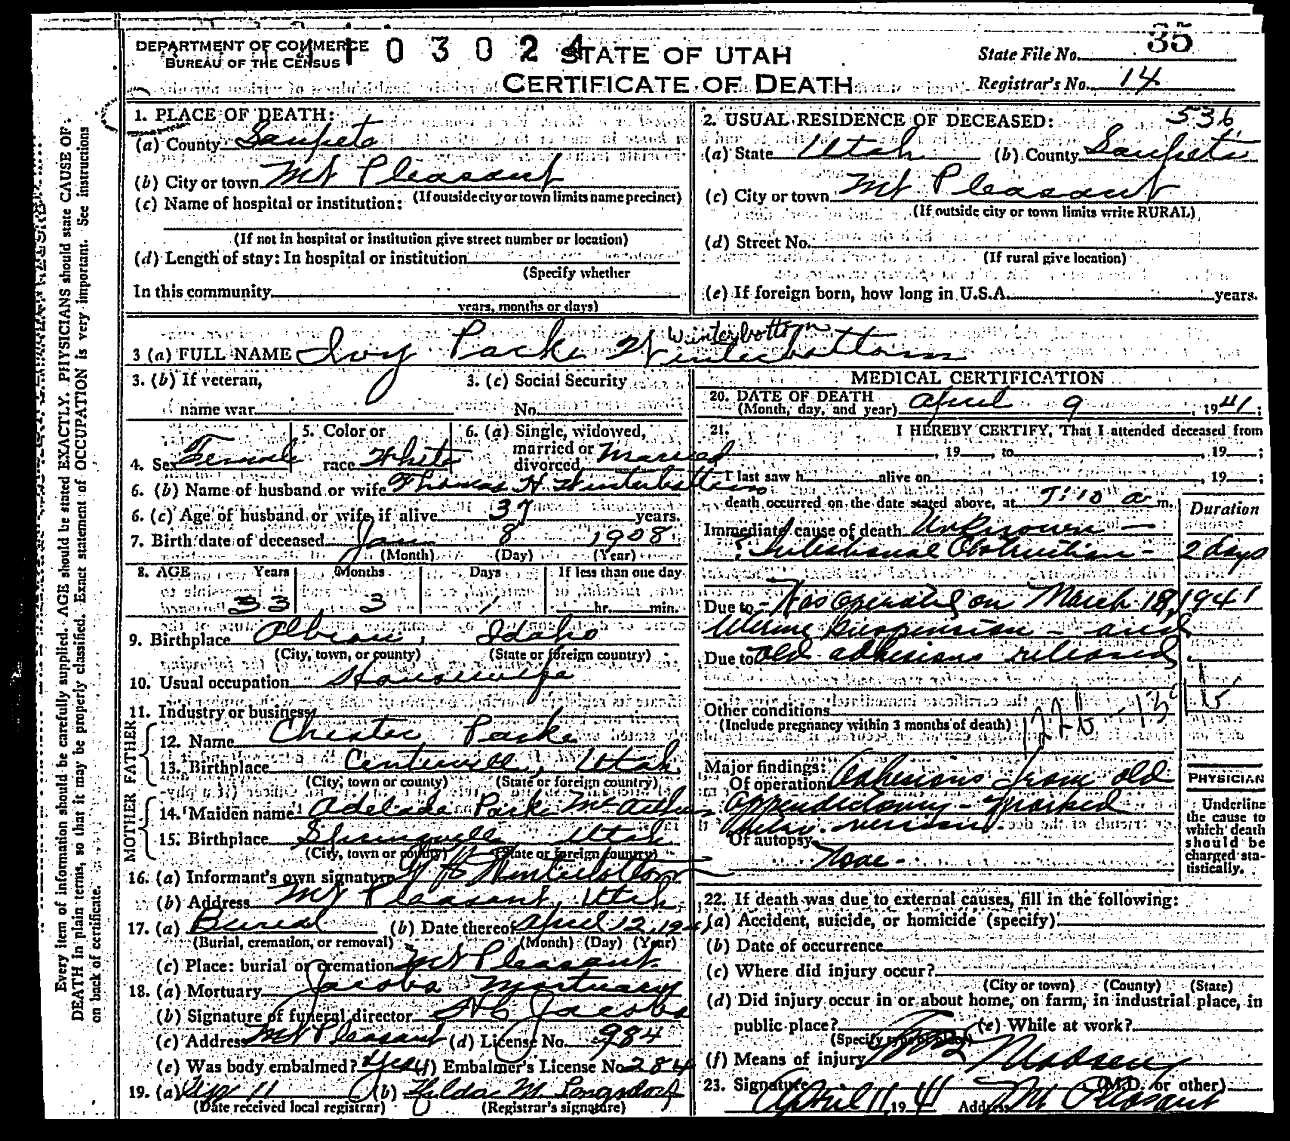 DEPARTMENT OF COMMERCE
BUREAU OF THE CENSUS
103024
STATE OF UTAH
CERTIFICATE OF DEATH
State File No. 35
Registrar's No. 14
Every item of information should be carefully supplied. AGE should be stated EXACTLY. PHYSICIANS should state CAUSE OF
DEATH in plain terms, so that it may be properly classified. Exact statement of OCCUPATION is very important. See instructions
on back of certificate.
1. PLACE OF DEATH:
(a) County Sanpete
(b) City or town Mt Pleasant
(If outside city or town limits name precinct)
(c) Name of hospital or institution:
(If not in hospital or institution give street number or location)
(d) Length of stay: In hospital or institution
(Specify whether
In this community
years, months or days)
536
2. USUAL RESIDENCE OF DECEASED:
(a) State Utah (b) County Sanpete
(c) City or town Mt Pleasant
(If outside city or town limits write RURAL)
(d) Street No.
(If rural give location)
(e) If foreign born, how long in U.S.A. years.
Winterbottom
3 (a) FULL NAME Ivy Parke Winterbottom
3. (b) If veteran,
name war
3. (c) Social Security
No.
4. Sex Female
5. Color or
race White
6. (a) Single, widowed,
married or
divorced Married
6. (b) Name of husband or wife Thomas H Winterbottom
6. (c) Age of husband or wife if alive 37 years.
7. Birth date of deceased Jan 8 1908
(Month) (Day) (Year)
8. AGE Years Months Days If less than one day
33 3 1 hr. min.
9. Birthplace Albion, Idaho
(City, town, or county) (State or foreign country)
10. Usual occupation Housewife
11. Industry or business
FATHER
12. Name Chester Parke
13. Birthplace Centerville, Utah
(City, town or county) (State or foreign country)
MOTHER
14. Maiden name Adelade Parke
15. Birthplace Springville Utah
(City, town or county) (State or foreign country)
16. (a) Informant's own signature Winterbottom
(b) Address Mt Pleasant, Utah
17. (a) Burial (b) Date thereof April 12, 1941
(Burial, cremation, or removal) (Month) (Day) (Year)
(c) Place: burial or cremation Mt Pleasant.
18. (a) Mortuary Jacobs Mortuary
(b) Signature of funeral director Jacobs
(c) Address Mt Pleasant (d) License No. 984
(e) Was body embalmed? Yes (f) Embalmer's License No. 284
19. (a) 11 (b) Hilda M. Longsdorf
(Date received local registrar) (Registrar's signature)
MEDICAL CERTIFICATION
20. DATE OF DEATH
(Month, day, and year) April 9, 1941;
21. I HEREBY CERTIFY, That I attended deceased from
, 19 , to , 19 ;
I last saw h alive on , 19 ;
death occurred on the date stated above, at 7:10 a m.
Duration
Immediate cause of death Unknown —
? Intestinal Obstruction - 2 days
Due to - Was operated on March 18, 1941
Uterine Suspension - and
Due to old adhesions released
Other conditions
(Include pregnancy within 3 months of death)
Major findings:
Of operation Adhesions from old
appendictomy - marked
Of autopsy None -
PHYSICIAN
Underline
the cause to
which death
should be
charged sta-
tistically.
22. If death was due to external causes, fill in the following:
(a) Accident, suicide, or homicide (specify)
(b) Date of occurrence
(c) Where did injury occur?
(City or town) (County) (State)
(d) Did injury occur in or about home, on farm, in industrial place, in
public place? (e) While at work?
(Specify type of place)
(f) Means of injury
23. Signature Madsen (M.D. or other)
April 11, 1941 Address Mt Pleasant